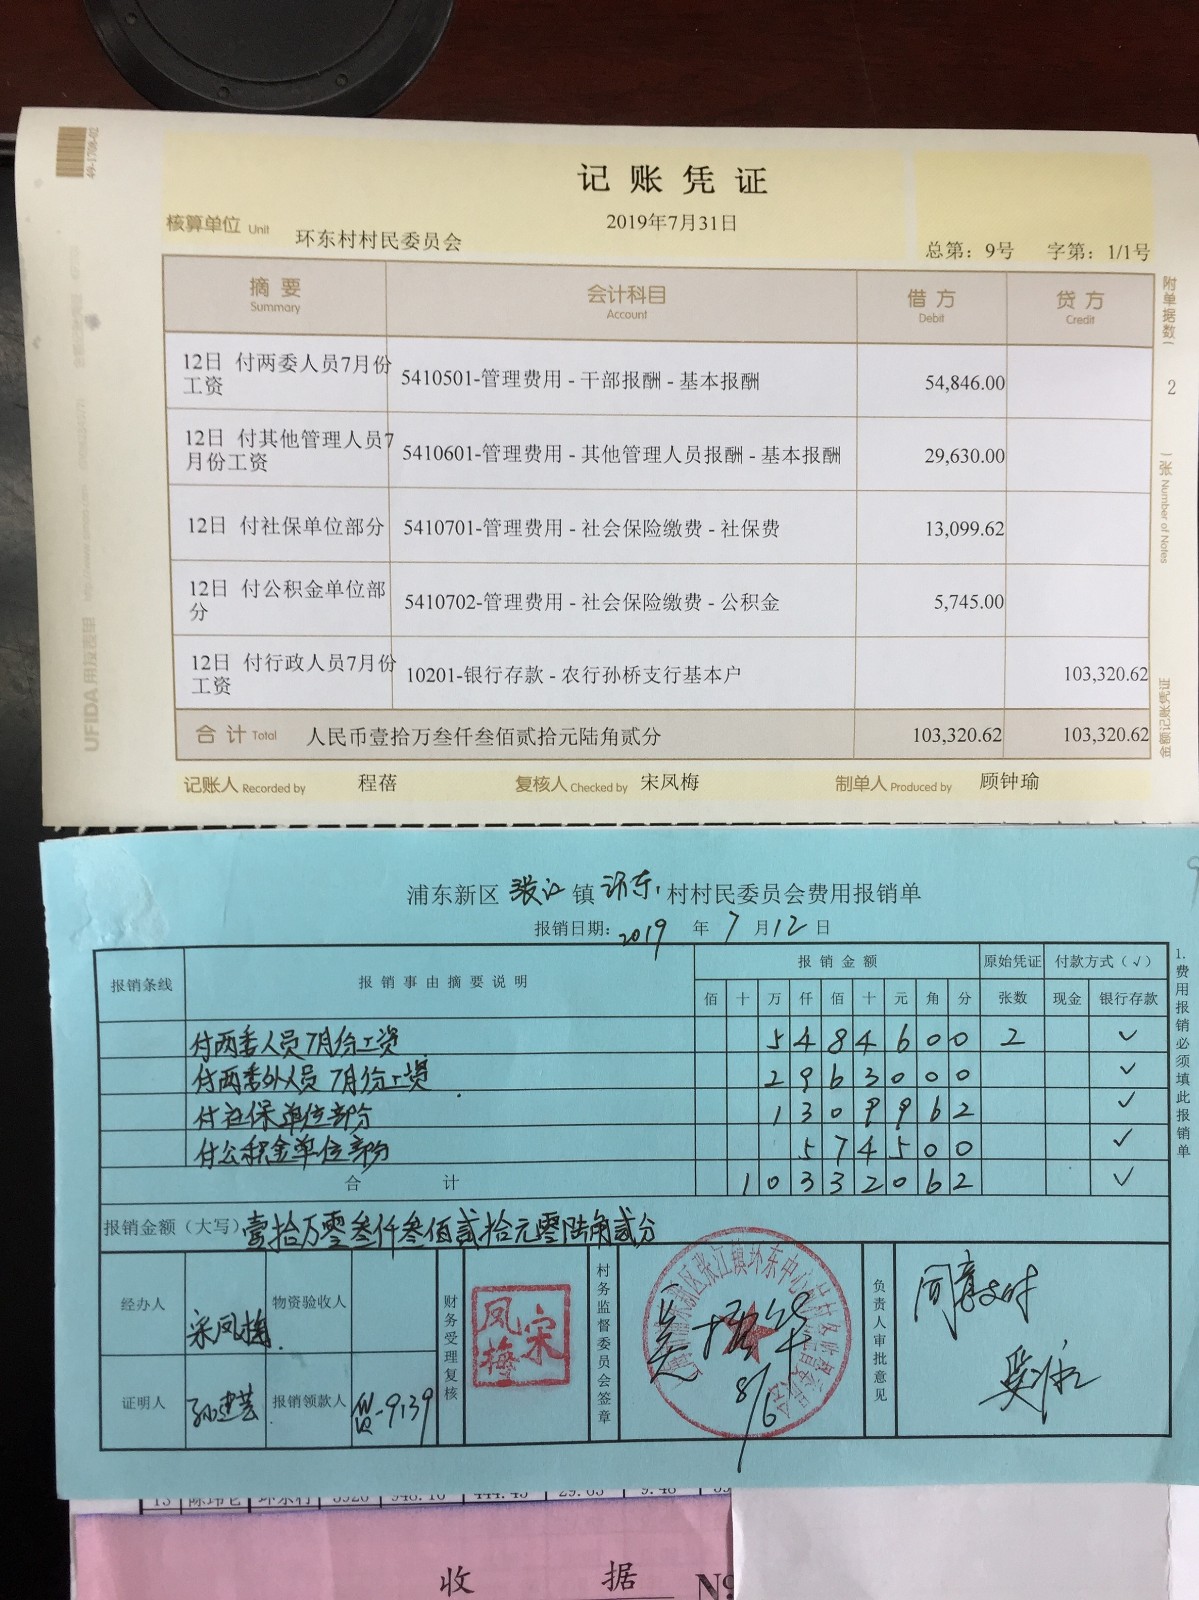 49-1708-02
记账凭证
2019年7月31日
核算单位 Unit 环东村村民委员会
总第：9号 字第：1/1号
摘要 会计科目 借方 贷方
Summary Account Debit Credit
12日 付两委人员7月份
工资 5410501-管理费用 - 干部报酬 - 基本报酬 54,846.00
12日 付其他管理人员7
月份工资 5410601-管理费用 - 其他管理人员报酬 - 基本报酬 29,630.00
12日 付社保单位部分 5410701-管理费用 - 社会保险缴费 - 社保费 13,099.62
12日 付公积金单位部
分 5410702-管理费用 - 社会保险缴费 - 公积金 5,745.00
12日 付行政人员7月份
工资 10201-银行存款 - 农行孙桥支行基本户 103,320.62
合计 Total 人民币壹拾万叁仟叁佰贰拾元陆角贰分 103,320.62 103,320.62
记账人 Recorded by 程蓓 复核人 Checked by 宋凤梅 制单人 Produced by 顾钟瑜
附单据数( 2 )张 Number of Notes
金额记账凭证
UFIDA 用友表单
浦东新区 张江 镇 环东 村村民委员会费用报销单
报销日期: 2019 年 7 月 12 日
报销条线 报销事由摘要说明 报销金额 原始凭证 付款方式（√）
佰 十 万 仟 佰 十 元 角 分 张数 现金 银行存款
付两委人员7月份工资 5 4 8 4 6 0 0 2 ✓
付两委外人员7月份工资 2 9 6 3 0 0 0 ✓
付社保单位部分 1 3 0 9 9 6 2 ✓
付公积金单位部份 5 7 4 5 0 0 ✓
合计 1 0 3 3 2 0 6 2 ✓
报销金额（大写） 壹拾万零叁仟叁佰贰拾元零陆角贰分
经办人 宋凤梅 物资验收人
证明人 孙建芸 报销领款人 贷-9139
财务受理复核 宋凤梅
村务监督委员会签章
8/6
负责人审批意见 同意支付
1.费用报销必须填此报销单
13 环东村
收据 №